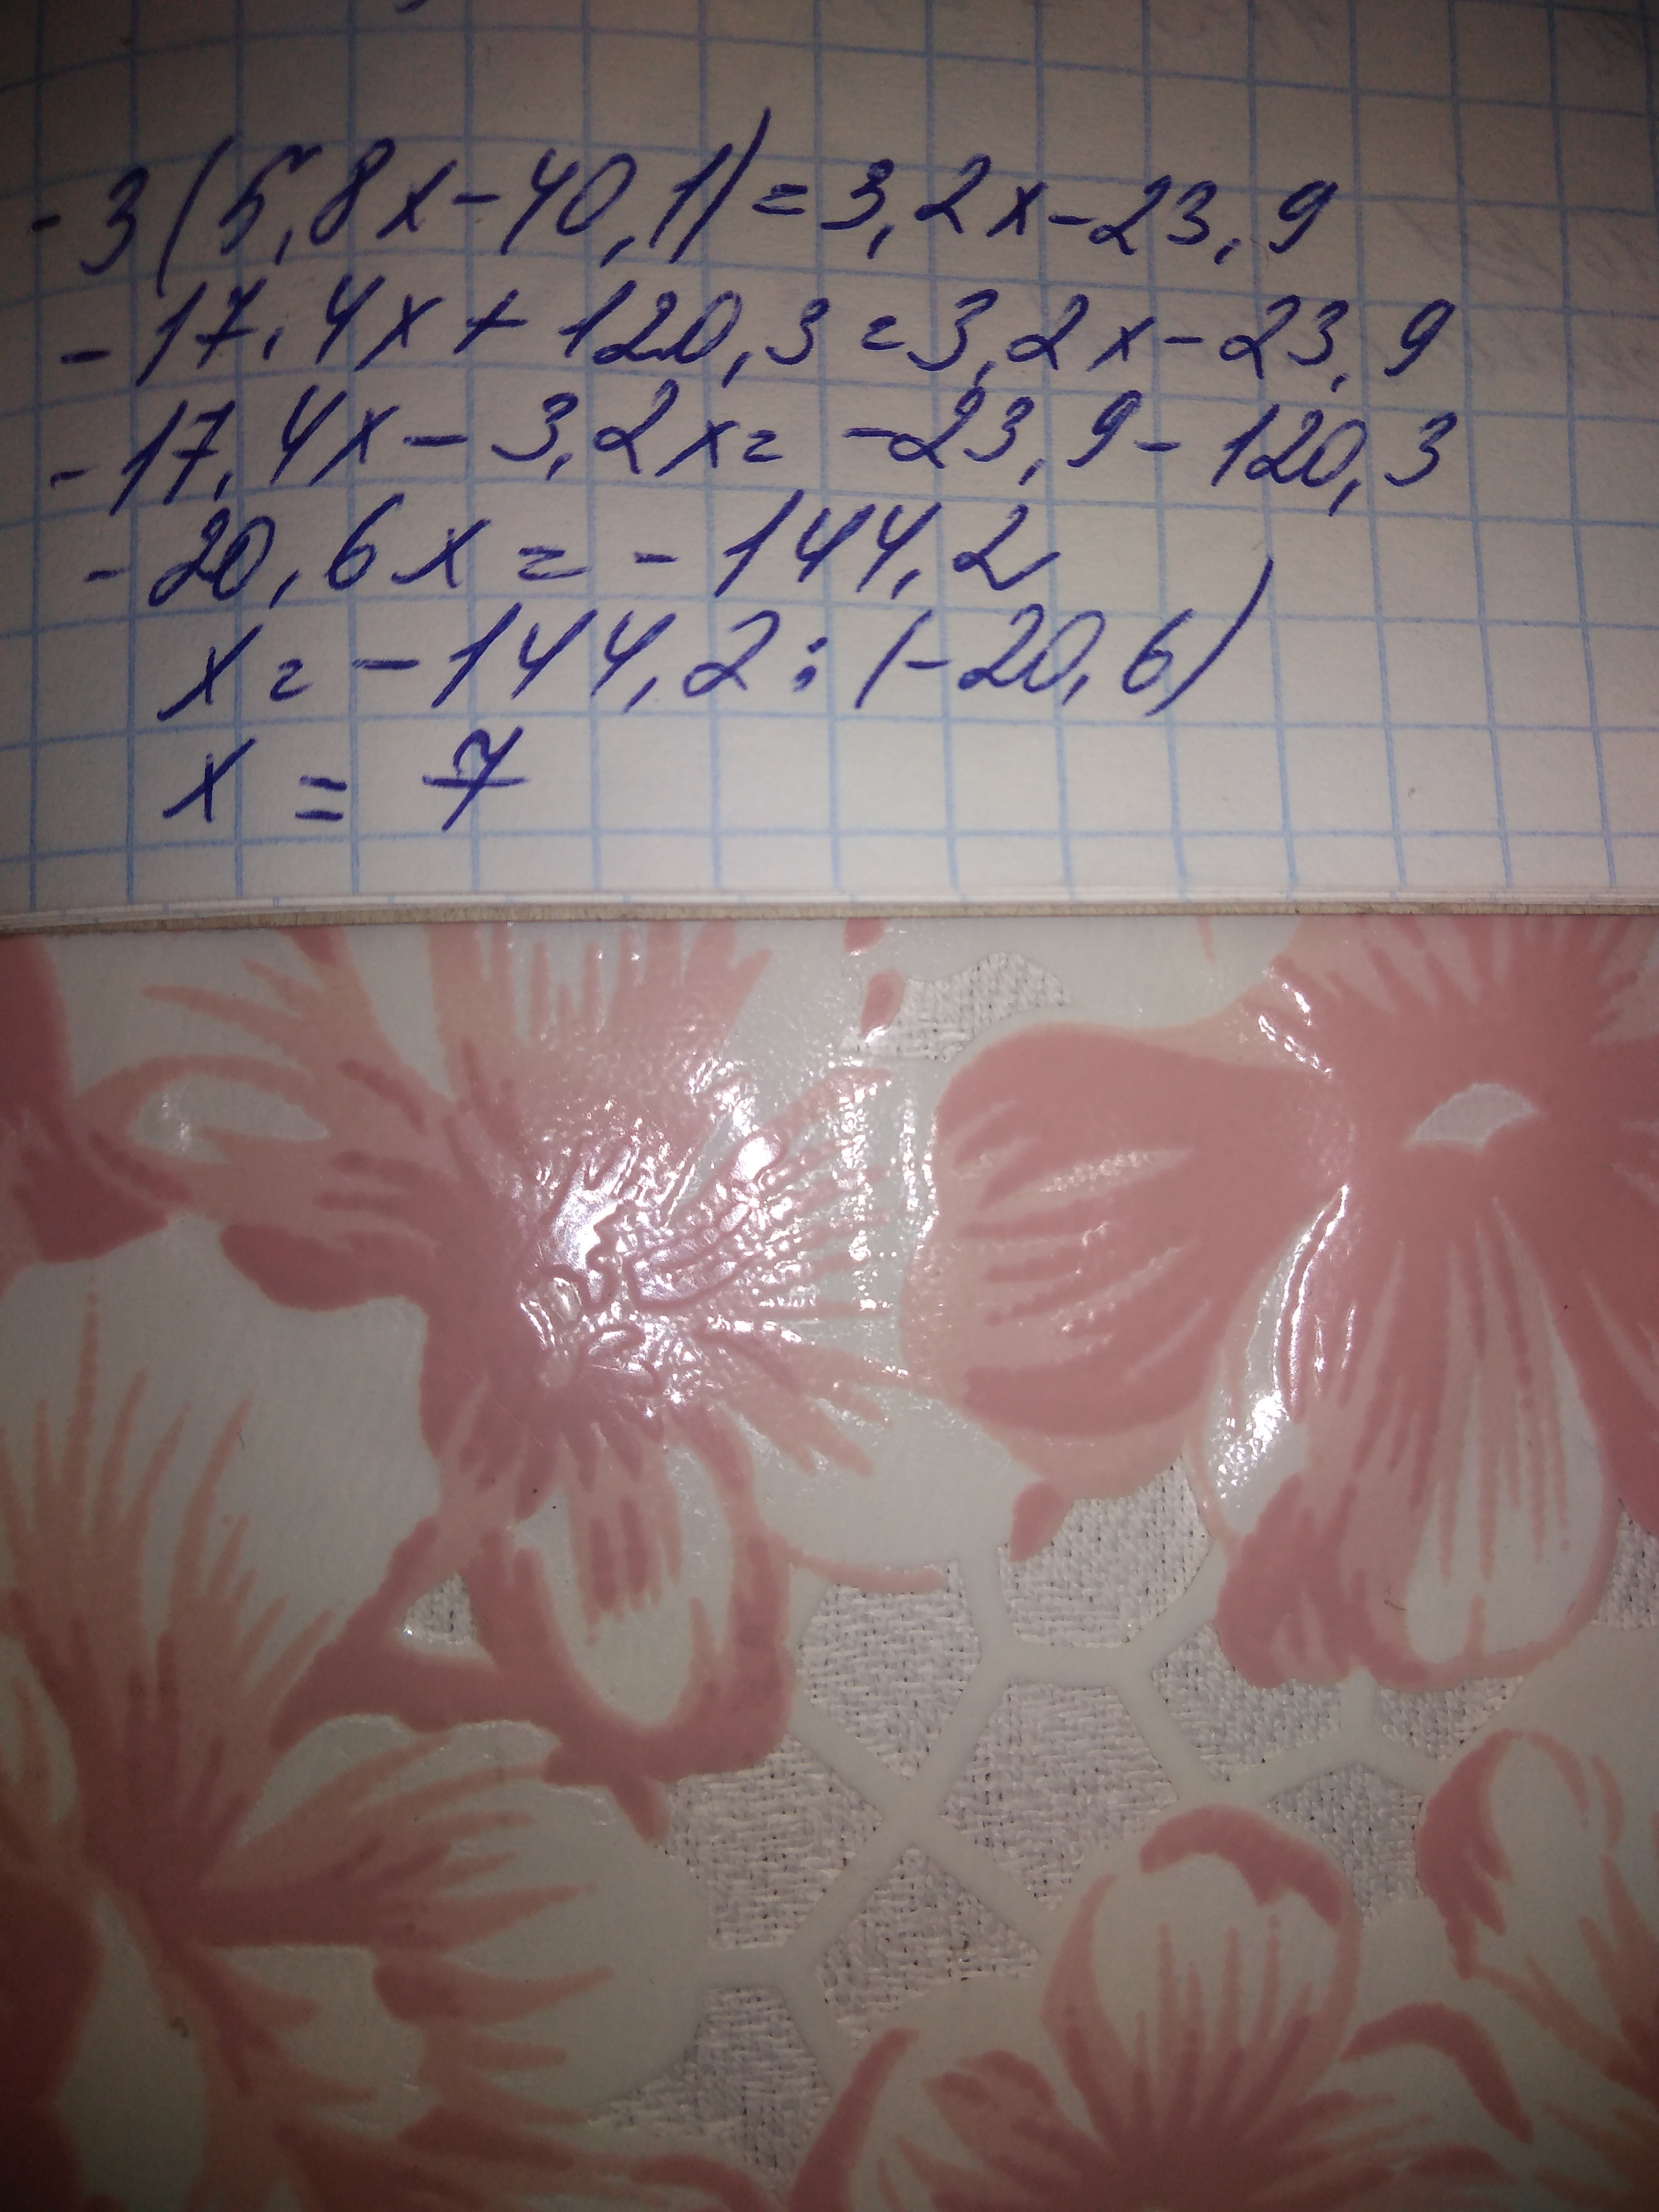 -3(5,8x-40,1)=3,2x-23,9
-17,4x+120,3=3,2x-23,9
-17,4x-3,2x=-23,9-120,3
-20,6x=-144,2
x=-144,2:(-20,6)
x=7